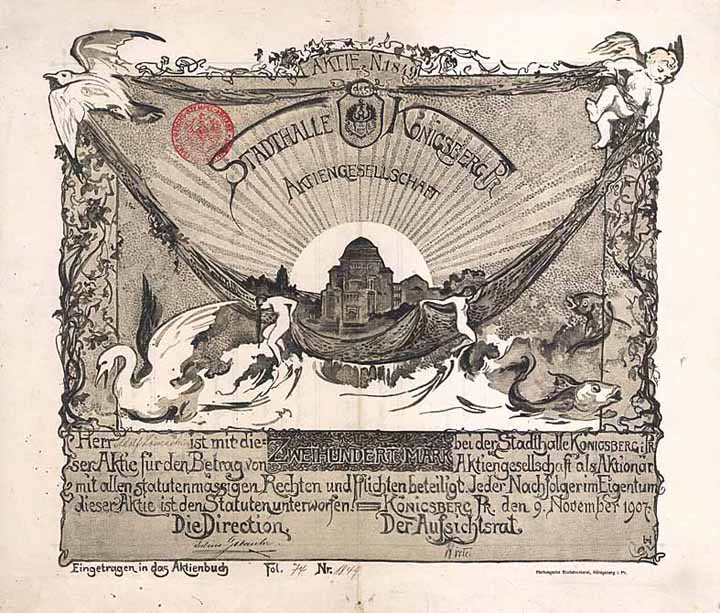 AKTIE N. 1849
der
STADTHALLE KÖNIGSBERG Pr.
AKTIENGESELLSCHAFT
Herr ist mit die= ZWEIHUNDERT MARK bei der Stadthalle KÖNIGSBERG i. Pr.
ser Aktie für den Betrag von Aktiengesellschaft als Aktionär
mit allen statutenmässigen Rechten und Pflichten beteiligt. Jeder Nachfolger im Eigentum
dieser Aktie ist den Statuten unterworfen. = KÖNIGSBERG Pr. den 9. November 1907.
Die Direction. Der Aufsichtsrat.
Eingetragen in das Aktienbuch Fol. 74 Nr. 1849
Hartungsche Buchdruckerei, Königsberg i. Pr.